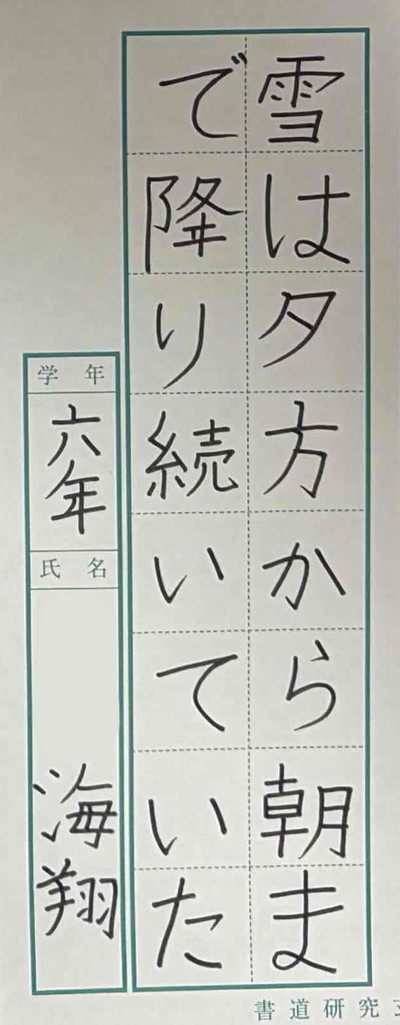 雪は夕方から朝ま
で降り続いていた
学年
六年
氏名
海翔
書道研究